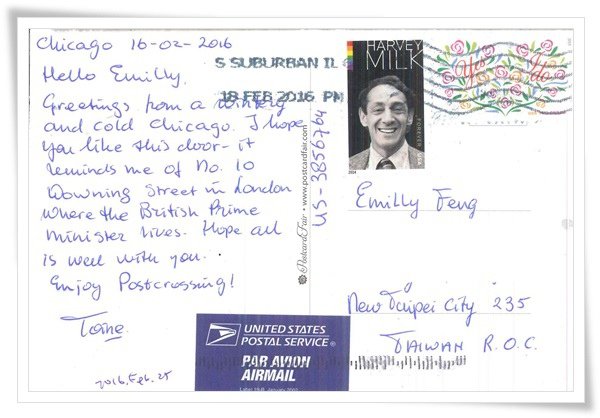 Chicago 16-02-2016
Hello Emilly,
Greetings from a wintery
and cold Chicago. I hope
you like this door - it
reminds me of No. 10
Downing Street in London
where the British Prime
Minister lives. Hope all
is well with you.
Enjoy Postcrossing!
2016.Feb.25
S SUBURBAN IL
18 FEB 2016 PM
HARVEY
MILK
FOREVER
USA
2014
Yes
I do
US-3856704
PostcardFair • www.postcardfair.com
Emilly Feng
New Taipei City 235
TAIWAN R.O.C.
UNITED STATES
POSTAL SERVICE®
PAR AVION
AIRMAIL